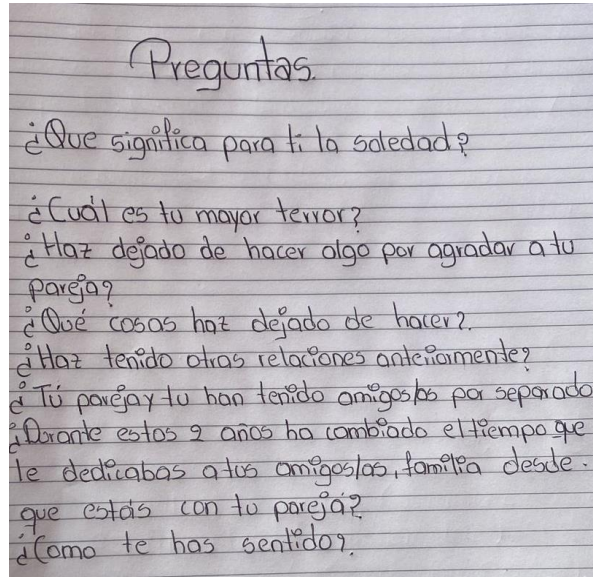 Preguntas.
¿Que significa para ti la soledad?
¿Cuál es tu mayor terror?
¿Haz dejado de hacer algo por agradar a tu
pareja?
¿Qué cosas haz dejado de hacer?.
¿Haz tenido otras relaciones anteriormente?
¿Tú pareja y tu han tenido amigos/as por separado
¿Durante estos 2 años ha cambiado el tiempo que
le dedicabas a tus amigos/as, familia desde.
que estás con tu pareja?
¿Como te has sentido?.